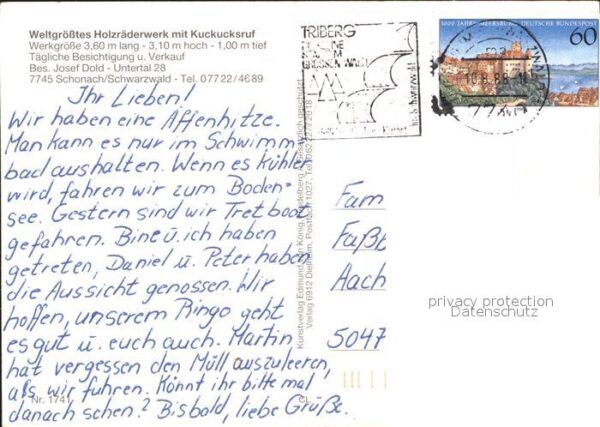 Weltgrößtes Holzräderwerk mit Kuckucksruf
Werkgröße 3,60 m lang - 3,10 m hoch - 1,00 m tief
Tägliche Besichtigung u. Verkauf
Bes. Josef Dold - Untertal 28
7745 Schonach/Schwarzwald - Tel. 07722/4689
Ihr Lieben!
Wir haben eine Affenhitze.
Man kann es nur im Schwimm
bad aushalten. Wenn es kühler
wird, fahren wir zum Boden=
see. Gestern sind wir Tretboot
gefahren. Bine u. ich haben
getreten, Daniel u. Peter haben
die Aussicht genossen. Wir
hoffen, unserem Ringo geht
es gut u. euch auch. Martin
hat vergessen den Müll auszuleeren,
als wir fuhren. Könnt ihr bitte mal
danach sehen? Bis bald, liebe Grüße.
Nr. 1741
TRIBERG
GROSSEN WALD
1000 JAHRE MEERSBURG DEUTSCHE BUNDESPOST
60
Fam
Faßb
Aach
5047
privacy protection
Datenschutz